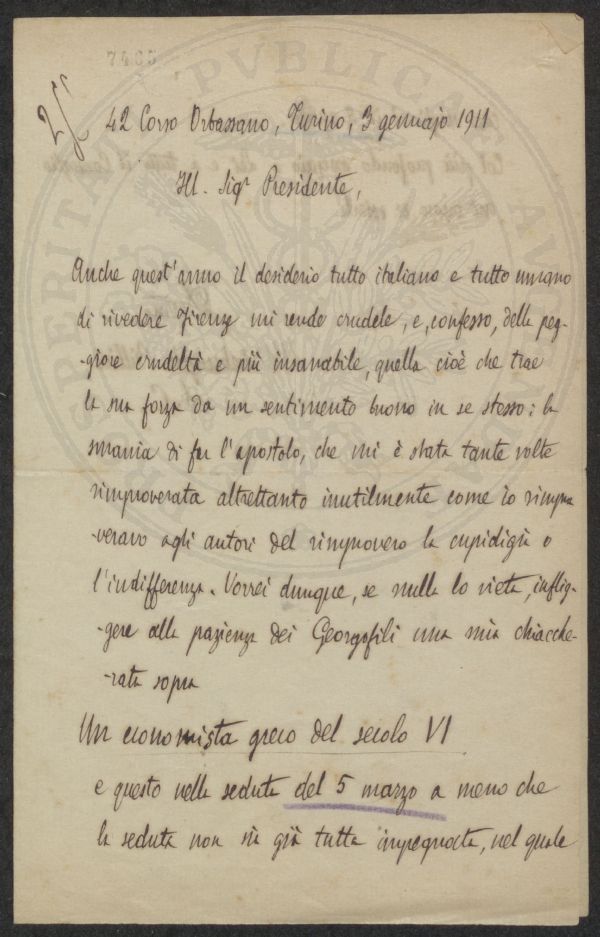 7465
42 Corso Orbassano, Turino, 3 gennajo 1911
Ill. Sigr Presidente,
Anche quest'anno il desiderio tutto italiano e tutto umano
di rivedere Firenze mi rende crudele, e, confesso, della peg-
-giore crudeltà e più insanabile, quella cioè che trae
la sua forza da un sentimento buono in se stesso: la
smania di far l'apostolo, che mi è stata tante volte
rimproverata altrettanto inutilmente come io rimpro
-veravo agli autori del rimprovero la cupidigia o
l'indifferenza. Vorrei dunque, se nulla lo vieta, inflig-
-gere alla pazienza dei Georgofili una mia chiacche-
-rata sopra
Un economista greco del secolo VI
e questo nella seduta del 5 marzo a meno che
la seduta non sia già tutta impegnata, nel quale